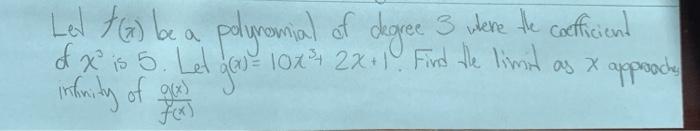 Let f(x) be a polynomial of degree 3 where the coefficient
of x³ is 5. Let g(x) = 10x³ + 2x + 1. Find the limit as x approaches
infinity of g(x)/f(x)